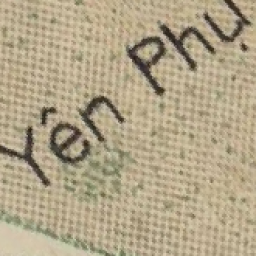 Yên Phụ